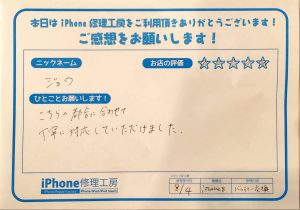 本日は iPhone 修理工房をご利用頂きありがとうございます！
ご感想をお願いします！
ニックネーム
お店の評価 ☆☆☆☆☆
ジョウ
ひとことお願いします！
こちらの都合に合わせて
丁寧に対応していただけました。
iPhone修理工房
8/4 iPhone8 バッテリー交換